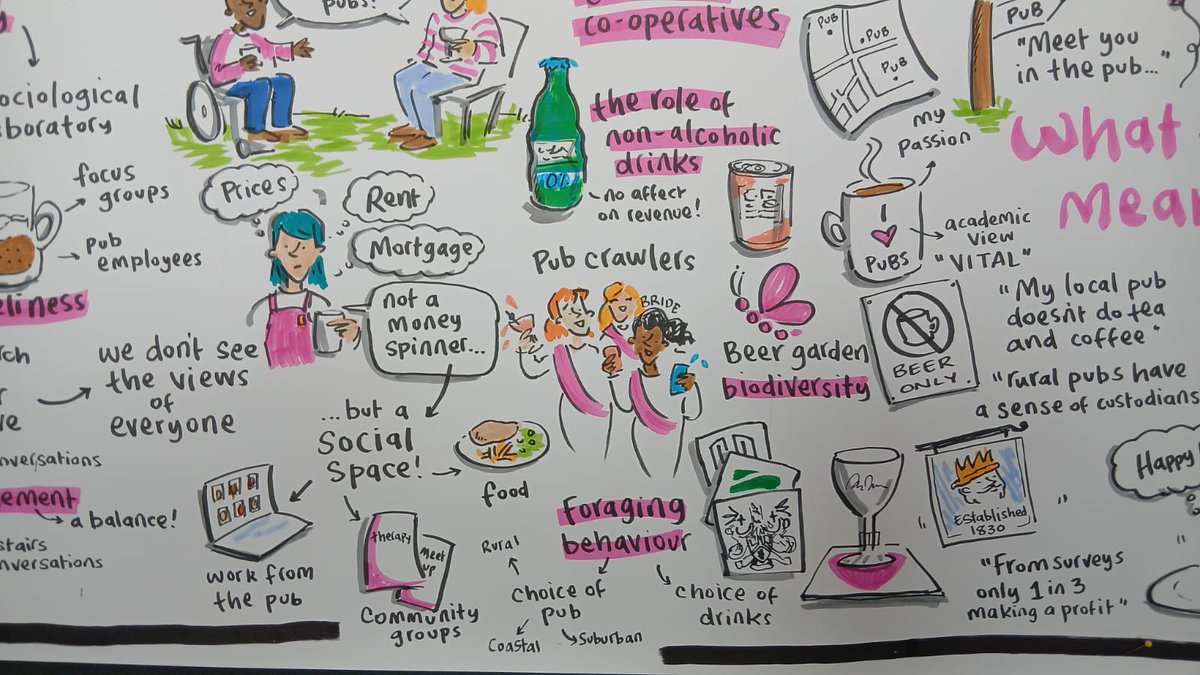 pubs!
co-operatives
the role of
non-alcoholic
drinks
0%
no affect
on revenue!
PUB
PUB
PUB
PUB
"Meet you
in the pub..."
my
passion
What
Mea
I
PUBS
academic
view
"VITAL"
ociological
aboratory
focus
groups
Pub
employees
eliness
rch
r
ve
we don't see
the views
of
everyone
onversations
ement
a balance!
stairs
onversations
Prices
Rent
Mortgage
not a
money
spinner...
...but a
Social
Space!
food
work from
the pub
therapy
Meet
up
Community
groups
Pub crawlers
BRIDE
Beer garden
biodiversity
BEER
ONLY
"My local pub
doesn't do tea
and coffee"
"rural pubs have
a sense of custodians
Foraging
behaviour
Rural
choice of
pub
Coastal
Suburban
choice of
drinks
Established
1830
Happy
"From surveys
only 1 in 3
making a profit"